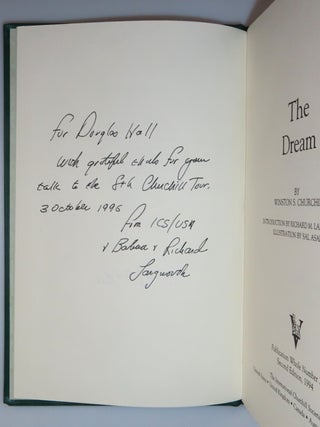 For Douglas Hall
With grateful thanks for your
talk to the 8th Churchill Tour.
3 October 1995
From ICS/USA
+ Barbara + Richard
Langworth
The
Dream
BY
WINSTON S. CHURCHI
INTRODUCTION BY RICHARD M. LA
ILLUSTRATION BY SAL ASA
Publication Whole Number
Second Edition, 1994
The International Churchill Societie